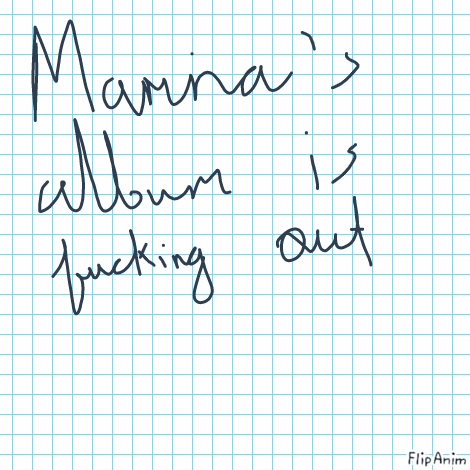 Marina's
album is
fucking out
FlipAnim